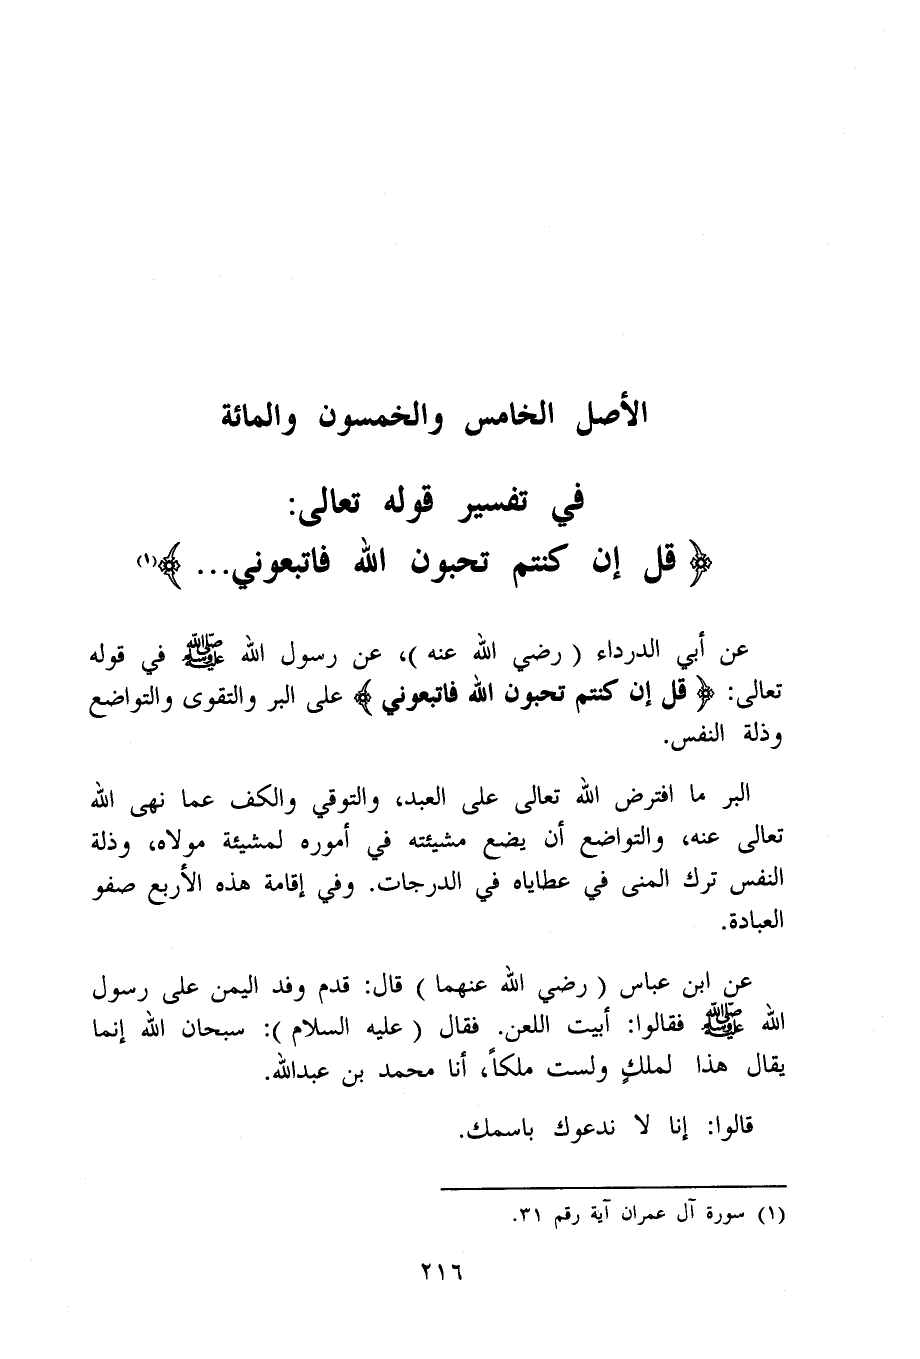 الأصل الخامس والخمسون والمائة
في تفسير قوله تعالى:
﴿ قل إن كنتم تحبون الله فاتبعوني... ﴾(١)
عن أبي الدرداء ( رضي الله عنه )، عن رسول الله ﷺ في قوله
تعالى: ﴿ قل إن كنتم تحبون الله فاتبعوني ﴾ على البر والتقوى والتواضع
وذلة النفس.
البر ما افترض الله تعالى على العبد، والتوقي والكف عما نهى الله
تعالى عنه، والتواضع أن يضع مشيئته في أموره لمشيئة مولاه، وذلة
النفس ترك المنى في عطاياه في الدرجات. وفي إقامة هذه الأربع صفو
العبادة.
عن ابن عباس ( رضي الله عنهما ) قال: قدم وفد اليمن على رسول
الله ﷺ فقالوا: أبيت اللعن. فقال ( عليه السلام ): سبحان الله إنما
يقال هذا لملكٍ ولست ملكاً، أنا محمد بن عبدالله.
قالوا: إنا لا ندعوك باسمك.
(١) سورة آل عمران آية رقم ٣١.
٢١٦